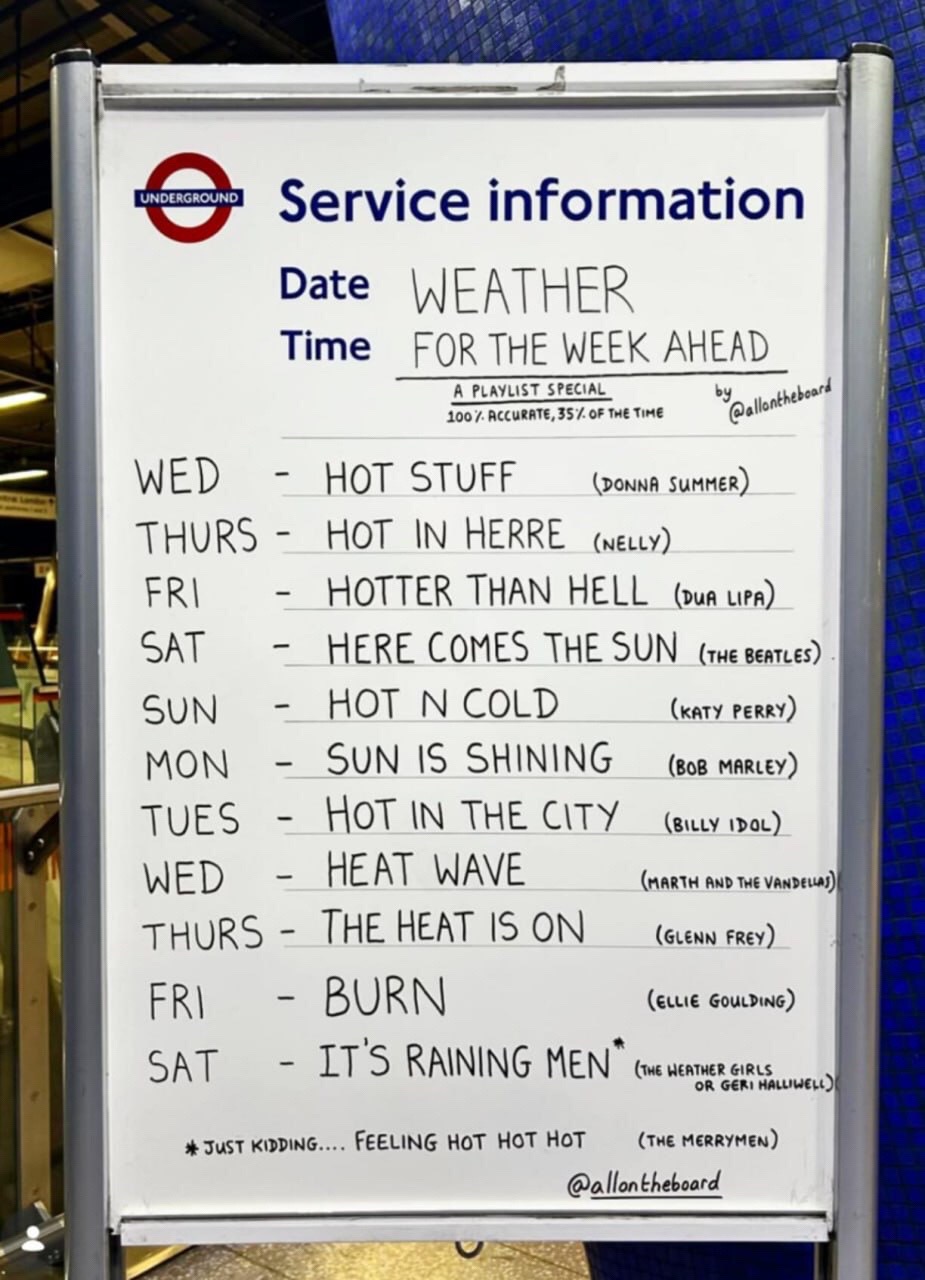 UNDERGROUND
Service information
Date WEATHER
Time FOR THE WEEK AHEAD
A PLAYLIST SPECIAL
100% ACCURATE, 35% OF THE TIME
by @allontheboard
WED - HOT STUFF (DONNA SUMMER)
THURS - HOT IN HERRE (NELLY)
FRI - HOTTER THAN HELL (DUA LIPA)
SAT - HERE COMES THE SUN (THE BEATLES)
SUN - HOT N COLD (KATY PERRY)
MON - SUN IS SHINING (BOB MARLEY)
TUES - HOT IN THE CITY (BILLY IDOL)
WED - HEAT WAVE (MARTH AND THE VANDELLAS)
THURS - THE HEAT IS ON (GLENN FREY)
FRI - BURN (ELLIE GOULDING)
SAT - IT'S RAINING MEN* (THE WEATHER GIRLS
OR GERI HALLIWELL)
* JUST KIDDING.... FEELING HOT HOT HOT (THE MERRYMEN)
@allontheboard